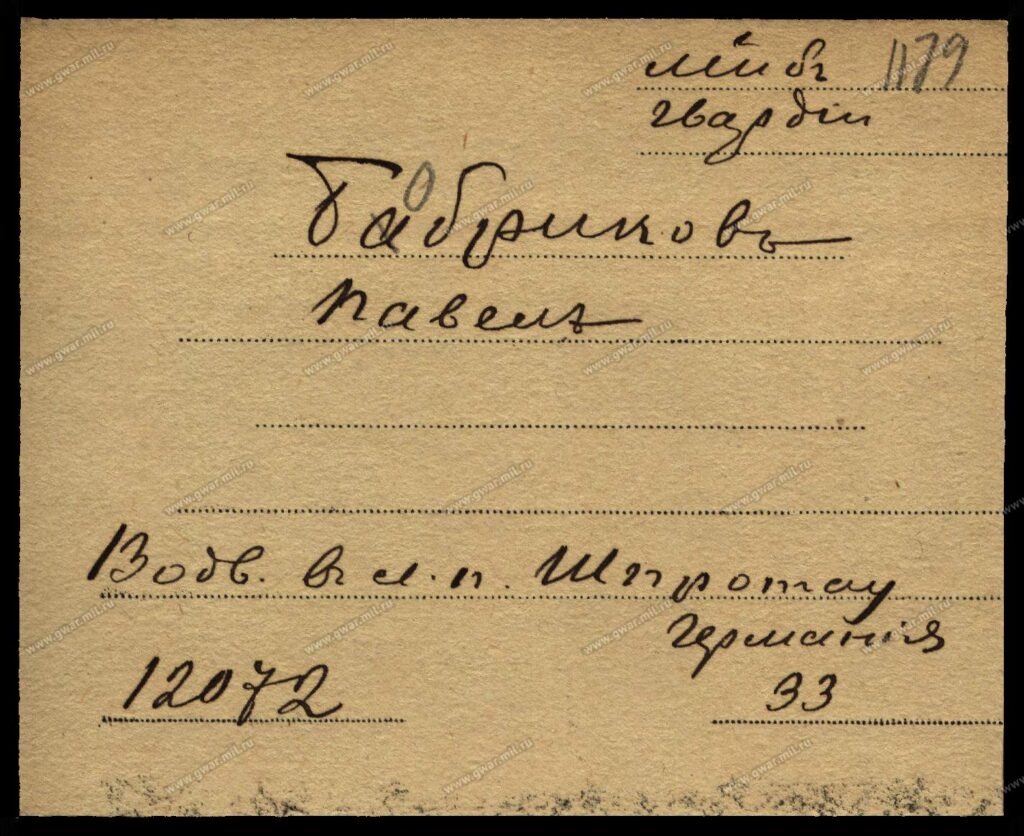 лейбъ 1179
гвардіи
Бабриковъ
о
Павелъ
Водв. въ л. п. Шпротау
Германія
12072
33
www.gwar.mil.ru